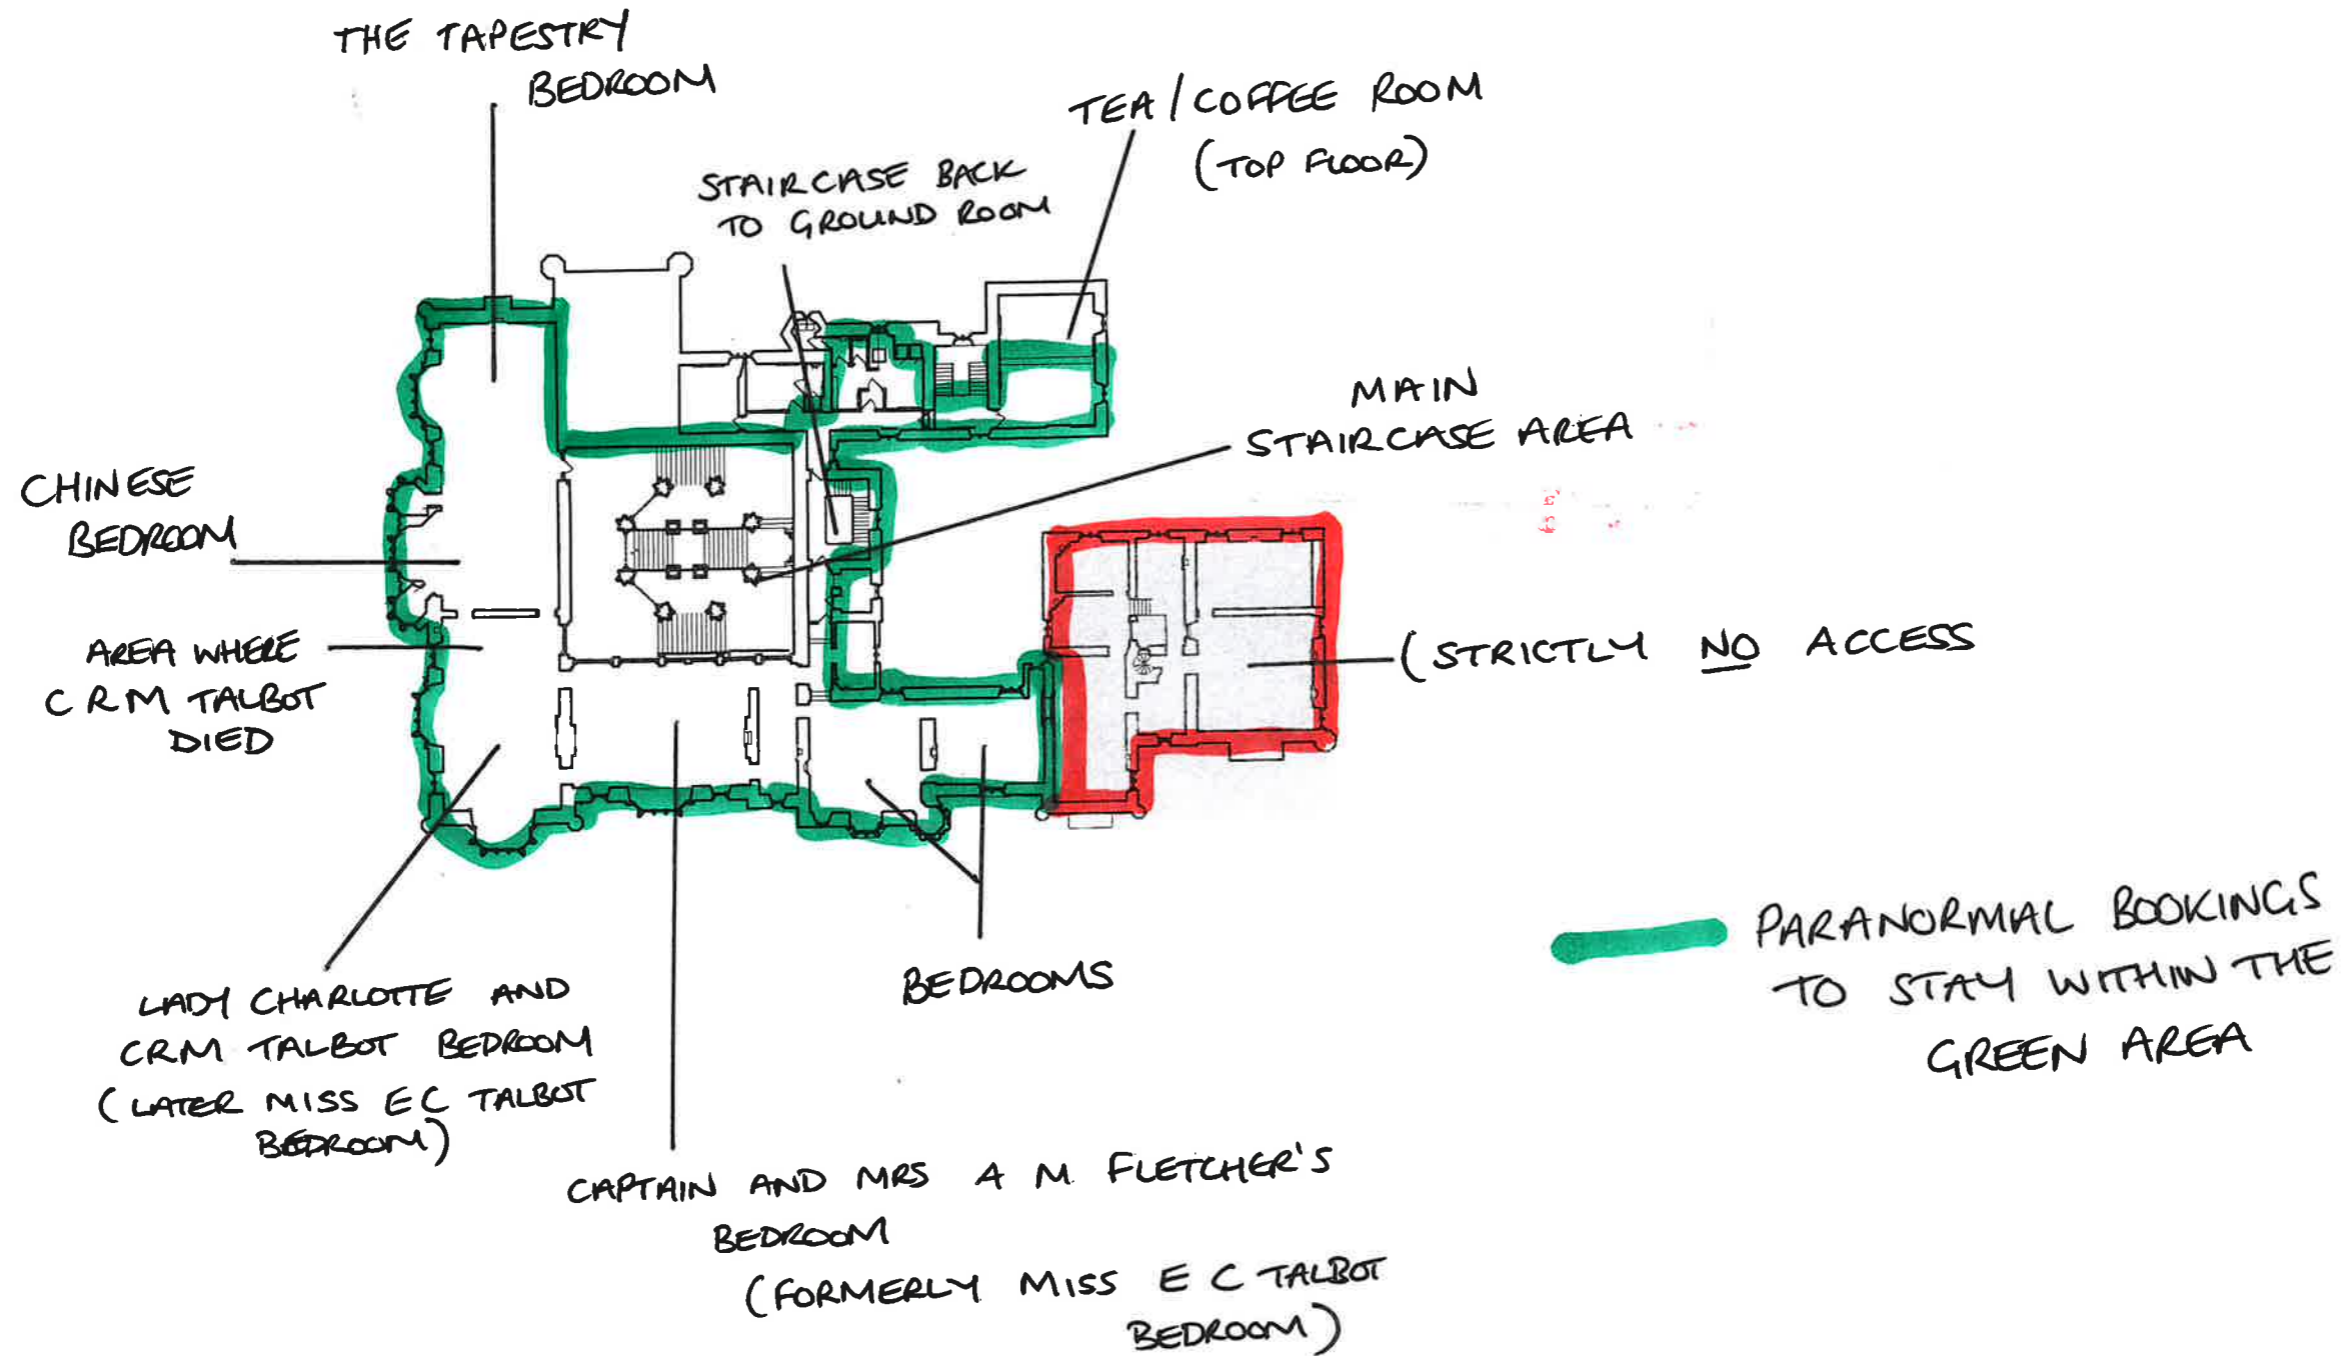 THE TAPESTRY
BEDROOM
TEA / COFFEE ROOM
(TOP FLOOR)
STAIRCASE BACK
TO GROUND ROOM
MAIN
STAIRCASE AREA
CHINESE
BEDROOM
AREA WHERE
C R M TALBOT
DIED
(STRICTLY NO ACCESS
LADY CHARLOTTE AND
CRM TALBOT BEDROOM
(LATER MISS E C TALBOT
BEDROOM)
BEDROOMS
CAPTAIN AND MRS A M FLETCHER'S
BEDROOM
(FORMERLY MISS E C TALBOT
BEDROOM)
PARANORMAL BOOKINGS
TO STAY WITHIN THE
GREEN AREA